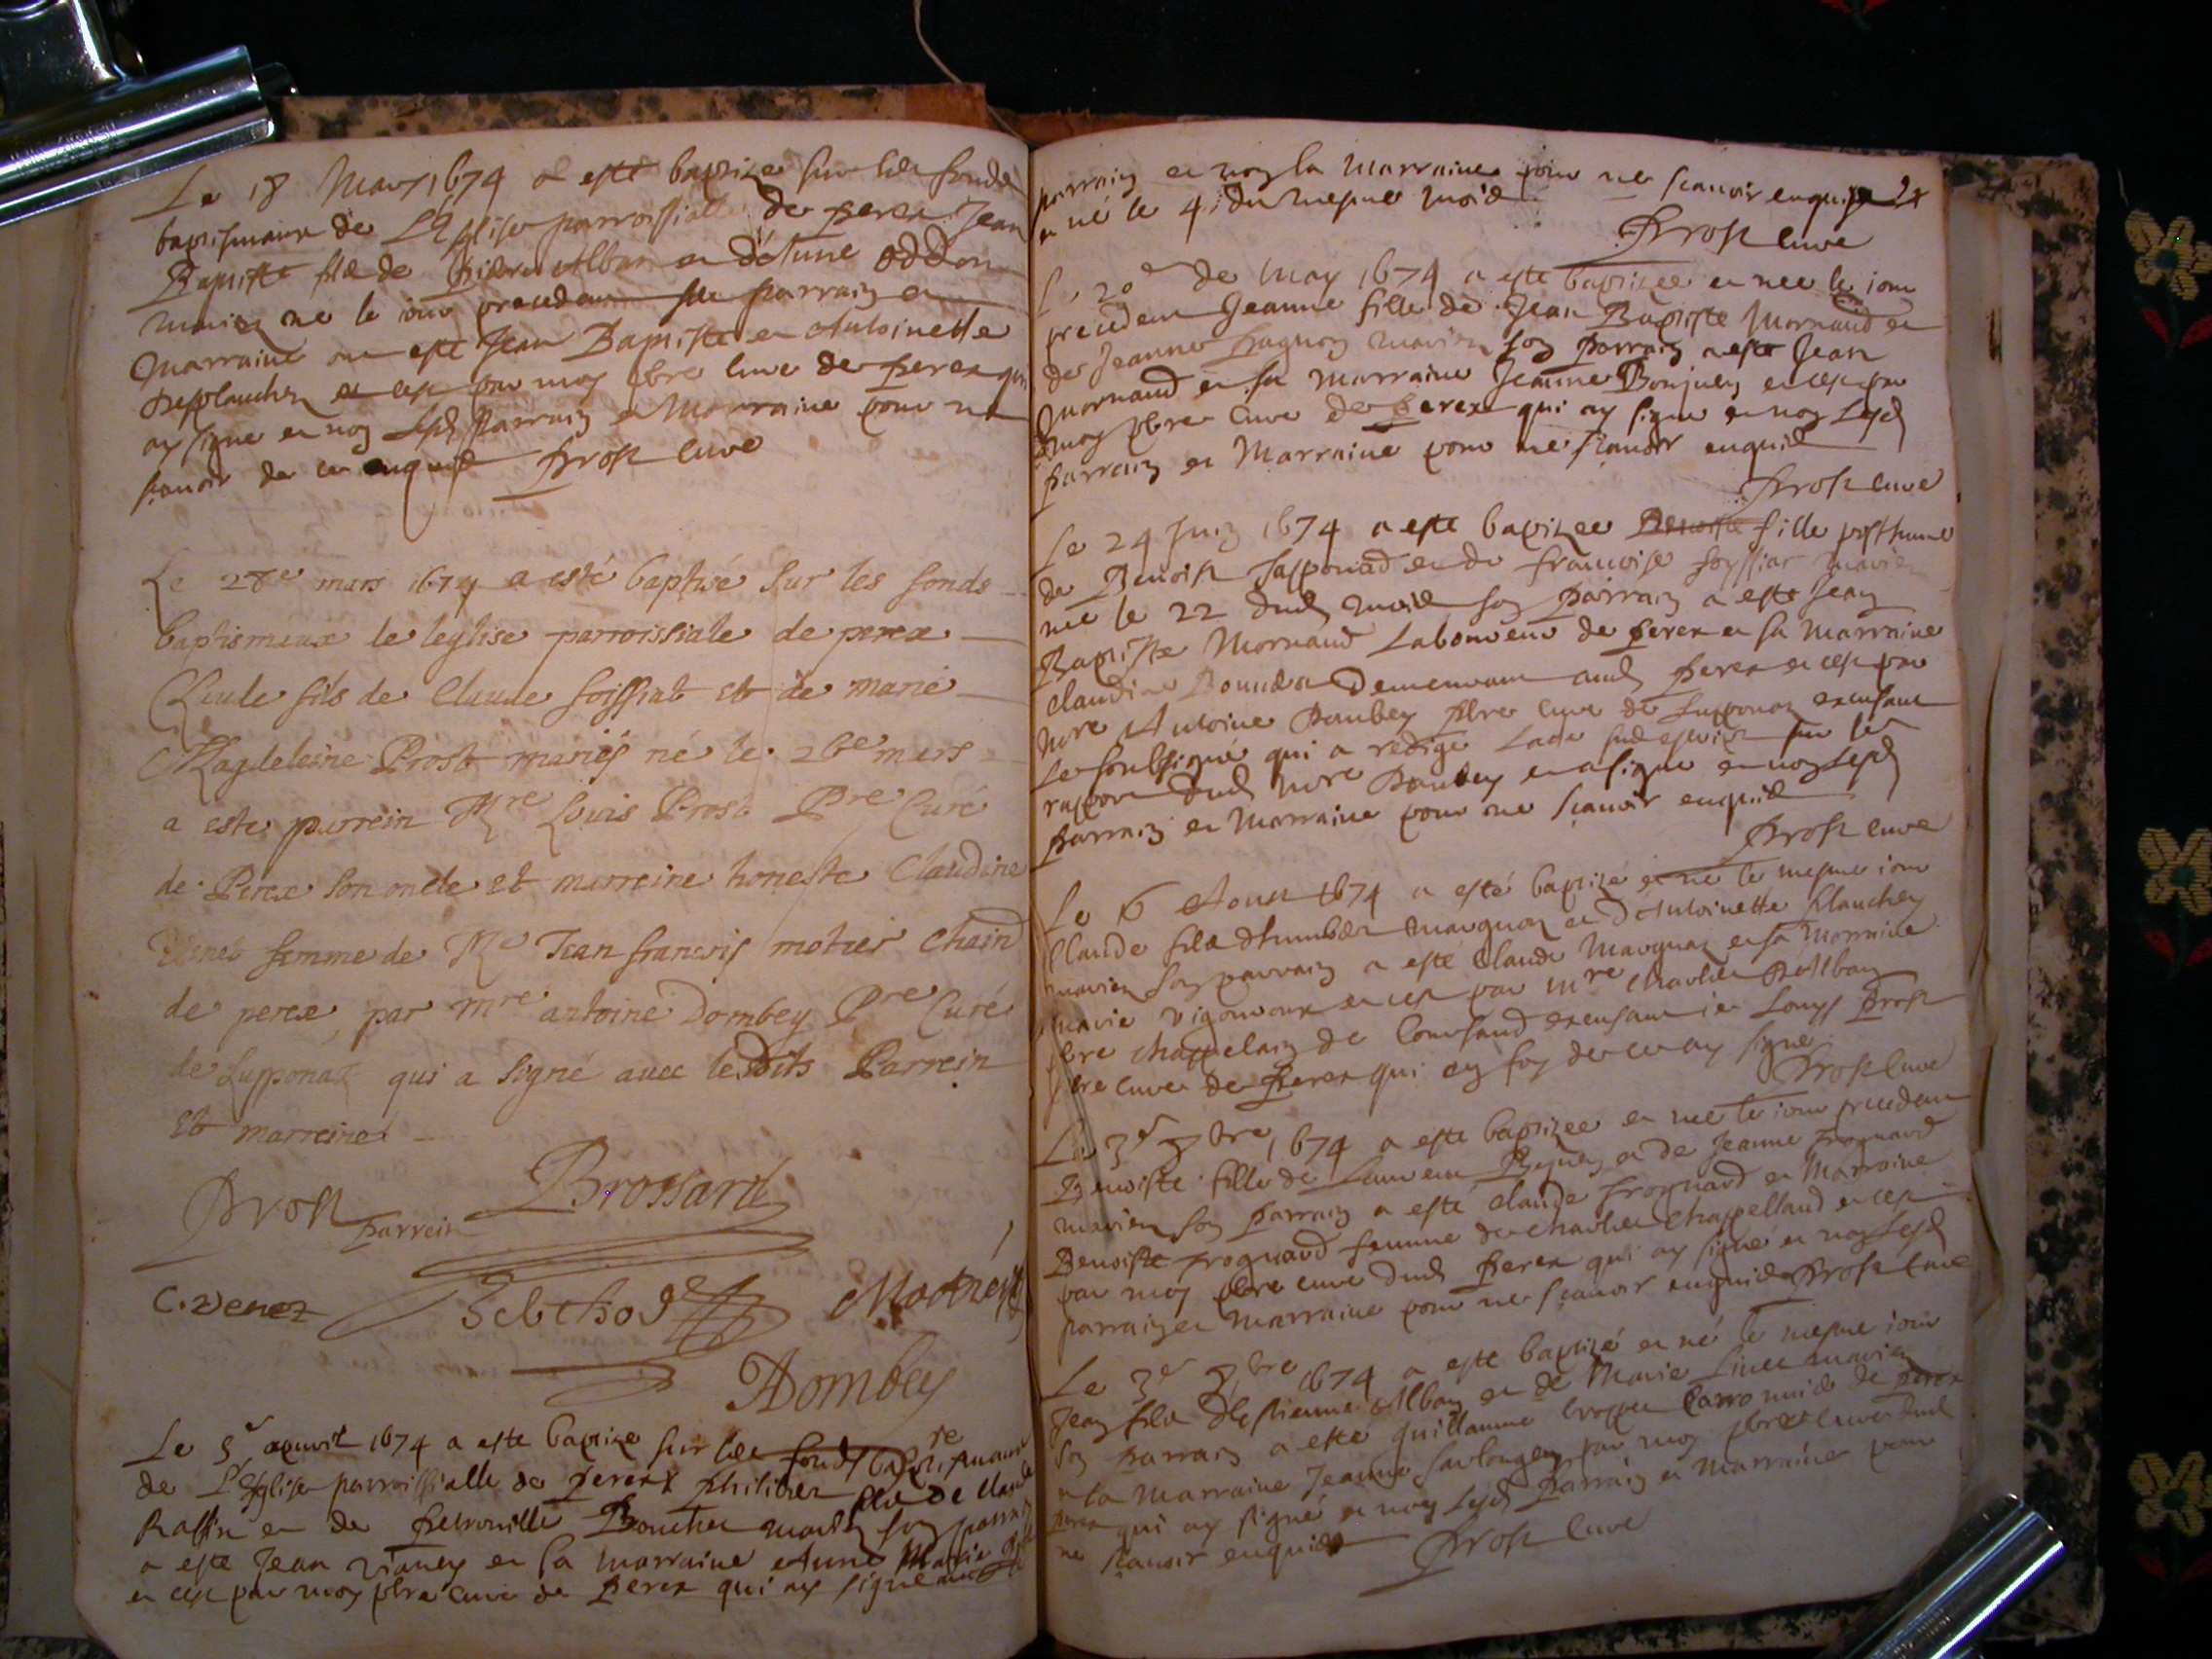 Le 18 Mars 1674 a esté baptizé sur les fonds
baptismaux de L'Eglise parroissialle de perex Jean
Baptiste fils de Pierre Alban et d'Anne Oddon
mariez né le jour precedent son parrain et
Marraine ont esté Jean Baptiste et Anthoinette
Desplanchez et cest par moy pbre curé de perex qui
ay signé et non Lesd parrain et Marraine pour ne
scavoir de ce enquis Prost curé
Le 28e mars 1674 a esté baptisé sur les fonds
baptismaux de leglise parroissiale de perex
Claude fils de Claude soissiat et de marie
Magdeleine Prost mariés né le 26e mars
a estes parrein Mre Louis Prost Pre Curé
de Perex son oncle et marreine honeste Claudine
Venet femme de Me Jean francois motiers Chain
de perex, par mre antoine Dombey Pre Curé
de Lupponaz qui a signé avec lesdits Parrein
et marreine
Prost parrein Brossard
C. venez Motiers
ADombey
Le 5e apuril 1674 a esté baptizé sur les fonds baptismaux
de L'Eglise parroissialle de perex philibert fils de Claude
Raffin et de petronille Bouchex mariez son parrain
a esté Jean vianey et sa marraine Anne Marie
et cest par moy pbre curé de perex qui ay signé
parrain et non la Marraine pour ne scavoir enquise
et né le 4 du mesme mois
Prost curé
Le 20e de May 1674 a esté baptizée et née le jour
precedent Jeanne fille de Jean Baptiste Mornaud et
de Jeanne pagnon mariez son parrain a esté Jean
Mornaud et sa Marraine Jeanne Bonjuen et cest par
moy pbre curé de perex qui ay signé et non Lesd
parrain et Marraine pour ne scavoir enquis
Prost curé
Le 24 Juin 1674 a esté baptizée Benoiste fille posthume
de Benoist Lasponad et de francoise soyssiat mariez
née le 22 dud mois son parrain a esté Jean
Baptiste Mornaud Laboureur de perex et sa Marraine
Claudine demeurant aud perex et cest par
Mre Antoine Daubey pbre curé de Lupponaz excusant
Le soubsigné qui a redigé Lacte sud escript sur le
rapport dud Mre Daubey et a signé et non Lesd
parrain et Marraine pour ne scavoir enquis
Prost curé
Le 6 Aoust 1674 a esté baptizé et né le mesme jour
Claude fils d'humbert marguaz et d'Anthoinette planchey
mariez son parrain a esté Claude Marguaz et sa Marraine
marie vigouroux et cest par mre Charles Dallban
pbre chappelain de Coursand excusant ie Louys prost
pbre curé de perex qui en foy de ce ay signé
Prost curé
Le 3e 7bre 1674 a esté baptizée et née le jour precedent
Benoiste fille de Laurent et de Jeanne frognard
mariez son parrain a esté claude frognard et Marraine
Benoiste frognard femme de charles chappelland et cest
par moy pbre curé dud perex qui ay signé et non Lesd
parrain et Marraine pour ne scavoir enquis Prost curé
Le 3e 8bre 1674 a esté baptizé et né le mesme jour
Jean fils d'Estienne Alban et de Marie mariez
son parrain a esté guillaume de perex
et la Marraine Jeanne par moy pbre curé dud
perex qui ay signé et non Lesd parrain et Marraine pour
ne scavoir enquis Prost curé